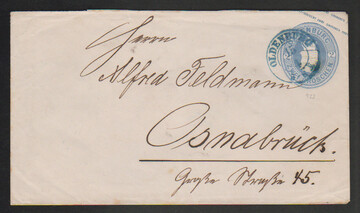 Herrn
Alfred Feldmann
Osnabrück.
Große Straße 45.
OLDENBURG